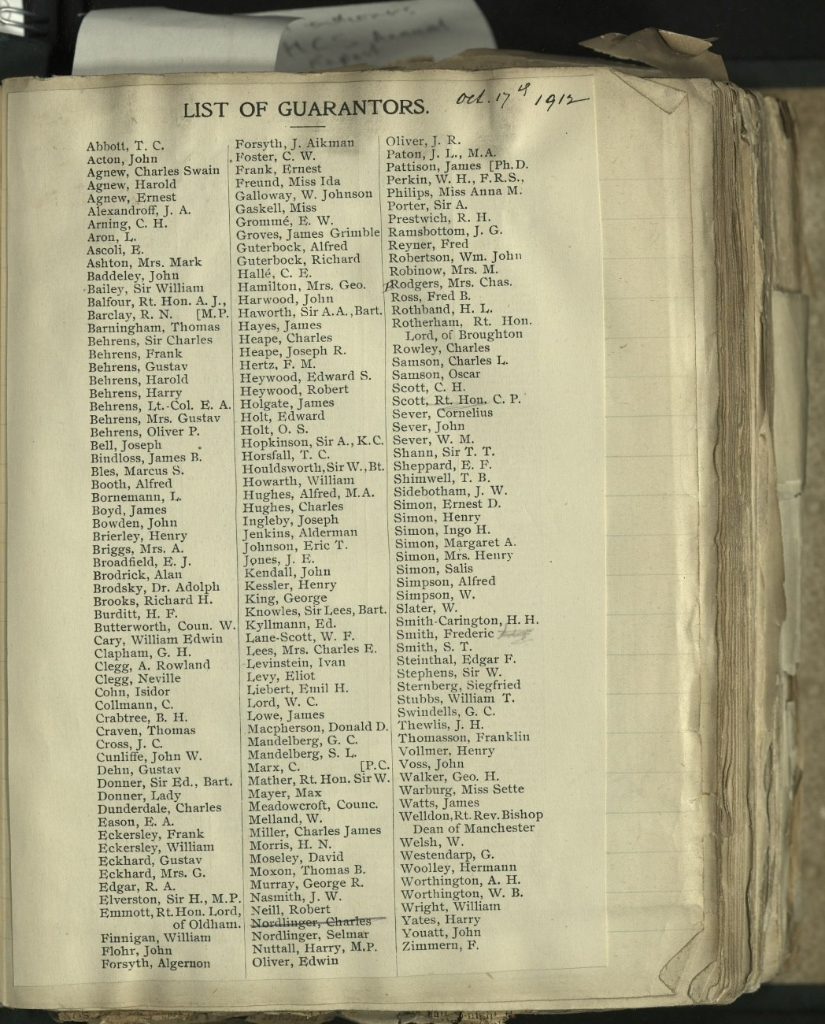 LIST OF GUARANTORS.
Oct. 17th 1912
Abbott, T. C.
Acton, John
Agnew, Charles Swain
Agnew, Harold
Agnew, Ernest
Alexandroff, J. A.
Arning, C. H.
Aron, L.
Ascoli, E.
Ashton, Mrs. Mark
Baddeley, John
Bailey, Sir William
Balfour, Rt. Hon. A. J.,
Barclay, R. N. [M.P.
Barningham, Thomas
Behrens, Sir Charles
Behrens, Frank
Behrens, Gustav
Behrens, Harold
Behrens, Harry
Behrens, Lt.-Col. E. A.
Behrens, Mrs. Gustav
Behrens, Oliver P.
Bell, Joseph
Bindloss, James B.
Bles, Marcus S.
Booth, Alfred
Bornemann, L.
Boyd, James
Bowden, John
Brierley, Henry
Briggs, Mrs. A.
Broadfield, E. J.
Brodrick, Alan
Brodsky, Dr. Adolph
Brooks, Richard H.
Burditt, H. F.
Butterworth, Coun. W.
Cary, William Edwin
Clapham, G. H.
Clegg, A. Rowland
Clegg, Neville
Cohn, Isidor
Collmann, C.
Crabtree, B. H.
Craven, Thomas
Cross, J. C.
Cunliffe, John W.
Dehn, Gustav
Donner, Sir Ed., Bart.
Donner, Lady
Dunderdale, Charles
Eason, E. A.
Eckersley, Frank
Eckersley, William
Eckhard, Gustav
Eckhard, Mrs. G.
Edgar, R. A.
Elverston, Sir H., M.P.
Emmott, Rt. Hon. Lord,
of Oldham.
Finnigan, William
Flohr, John
Forsyth, Algernon
Forsyth, J. Aikman
Foster, C. W.
Frank, Ernest
Freund, Miss Ida
Galloway, W. Johnson
Gaskell, Miss
Grommé, E. W.
Groves, James Grimble
Guterbock, Alfred
Guterbock, Richard
Hallé, C. E.
Hamilton, Mrs. Geo.
Harwood, John
Haworth, Sir A.A., Bart.
Hayes, James
Heape, Charles
Heape, Joseph R.
Hertz, F. M.
Heywood, Edward S.
Heywood, Robert
Holgate, James
Holt, Edward
Holt, O. S.
Hopkinson, Sir A., K.C.
Horsfall, T. C.
Houldsworth, Sir W., Bt.
Howarth, William
Hughes, Alfred, M.A.
Hughes, Charles
Ingleby, Joseph
Jenkins, Alderman
Johnson, Eric T.
Jones, J. E.
Kendall, John
Kessler, Henry
King, George
Knowles, Sir Lees, Bart.
Kyllmann, Ed.
Lane-Scott, W. F.
Lees, Mrs. Charles E.
Levinstein, Ivan
Levy, Eliot
Liebert, Emil H.
Lord, W. C.
Lowe, James
Macpherson, Donald D.
Mandelberg, G. C.
Mandelberg, S. L.
Marx, C. [P.C.
Mather, Rt. Hon. Sir W.
Mayer, Max
Meadowcroft, Counc.
Melland, W.
Miller, Charles James
Morris, H. N.
Moseley, David
Moxon, Thomas B.
Murray, George R.
Nasmith, J. W.
Neill, Robert
Nordlinger, Charles
Nordlinger, Selmar
Nuttall, Harry, M.P.
Oliver, Edwin
Oliver, J. R.
Paton, J. L., M.A.
Pattison, James [Ph.D.
Perkin, W. H., F.R.S.,
Philips, Miss Anna M.
Porter, Sir A.
Prestwich, R. H.
Ramsbottom, J. G.
Reyner, Fred
Robertson, Wm. John
Robinow, Mrs. M.
Rodgers, Mrs. Chas.
Ross, Fred B.
Rothband, H. L.
Rotherham, Rt. Hon.
Lord, of Broughton
Rowley, Charles
Samson, Charles L.
Samson, Oscar
Scott, C. H.
Scott, Rt. Hon. C. P.
Sever, Cornelius
Sever, John
Sever, W. M.
Shann, Sir T. T.
Sheppard, E. F.
Shimwell, T. B.
Sidebotham, J. W.
Simon, Ernest D.
Simon, Henry
Simon, Ingo H.
Simon, Margaret A.
Simon, Mrs. Henry
Simon, Salis
Simpson, Alfred
Simpson, W.
Slater, W.
Smith-Carington, H. H.
Smith, Frederic
Smith, S. T.
Steinthal, Edgar F.
Stephens, Sir W.
Sternberg, Siegfried
Stubbs, William T.
Swindells, G. C.
Thewlis, J. H.
Thomasson, Franklin
Vollmer, Henry
Voss, John
Walker, Geo. H.
Warburg, Miss Sette
Watts, James
Welldon, Rt. Rev. Bishop
Dean of Manchester
Welsh, W.
Westendarp, G.
Woolley, Hermann
Worthington, A. H.
Worthington, W. B.
Wright, William
Yates, Harry
Youatt, John
Zimmern, F.